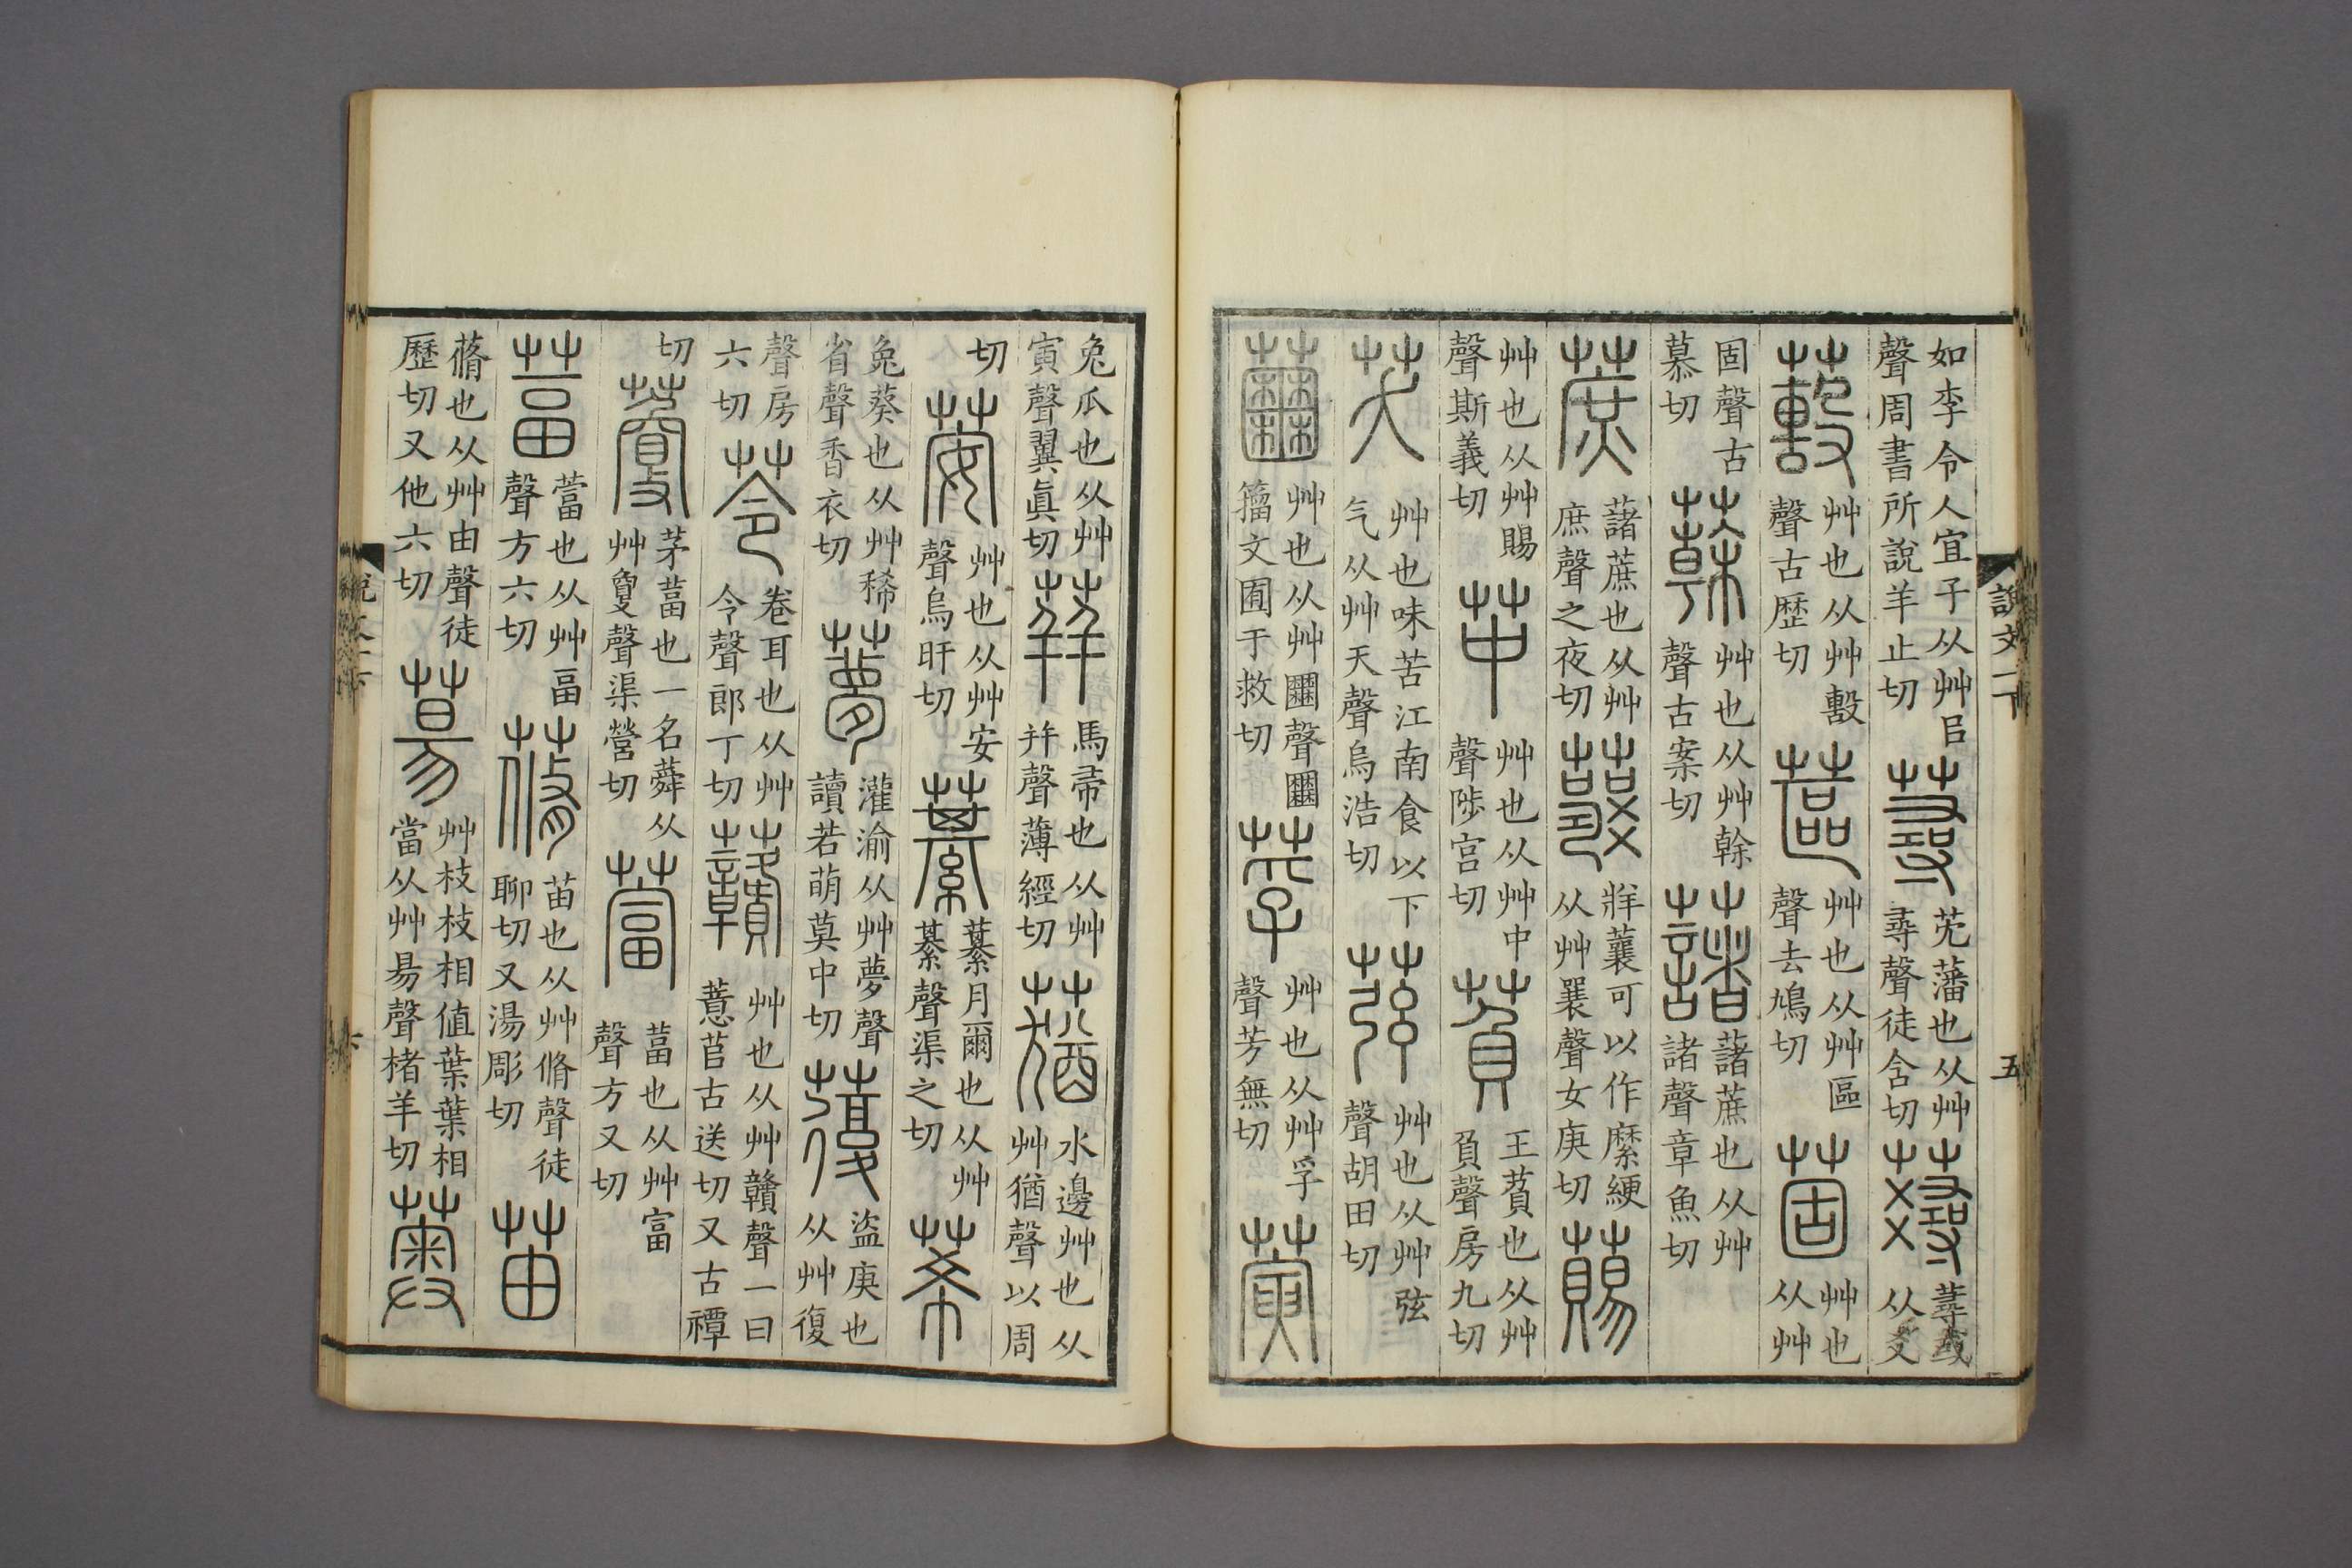 如李令人宜子从艸㠯聲周書所說羊止切蕁芫藩也从艸尋聲徒含切𧂇蕁或从爻
藃艸也从艸毄聲古歷切蓲艸也从艸區聲去鳩切䓢艸也从艸
固聲古慕切𦼮艸也从艸榦聲古案切藷藷蔗也从艸諸聲章魚切
蔗藷蔗也从艸庶聲之夜切䕭牂䕭可以作縻綆从艸襄聲女庚切𧀩
艸也从艸賜聲斯義切艸也从艸中聲陟宮切萯王萯也从艸負聲房九切
芺艸也味苦江南食以下气从艸夭聲烏浩切艸也从艸弦聲胡田切
艸也从艸𡈹聲𡈹籒文囿于救切莩艸也从艸孚聲芳無切𦸣
兔瓜也从艸寅聲翼眞切荓馬帚也从艸幷聲薄經切蕕水邊艸也从艸猶聲以周
切荌艸也从艸安聲烏旰切藄藄月爾也从艸綦聲渠之切莃
兔葵也从艸稀省聲香衣切灌渝从艸夢聲讀若萌莫中切蕧盜庚也从艸復
聲房六切苓卷耳也从艸令聲郎丁切艸也从艸贛聲一曰薏苢古送切又古禫
切藑茅葍也一名蕣从艸夐聲渠營切葍也从艸富聲方又切
葍也从艸畐聲方六切蓨苗也从艸脩聲徒聊切又湯彫切苖
蓨也从艸由聲徒歷切又他六切艸枝枝相值葉葉相當从艸昜聲楮羊切薁
說文一下 五